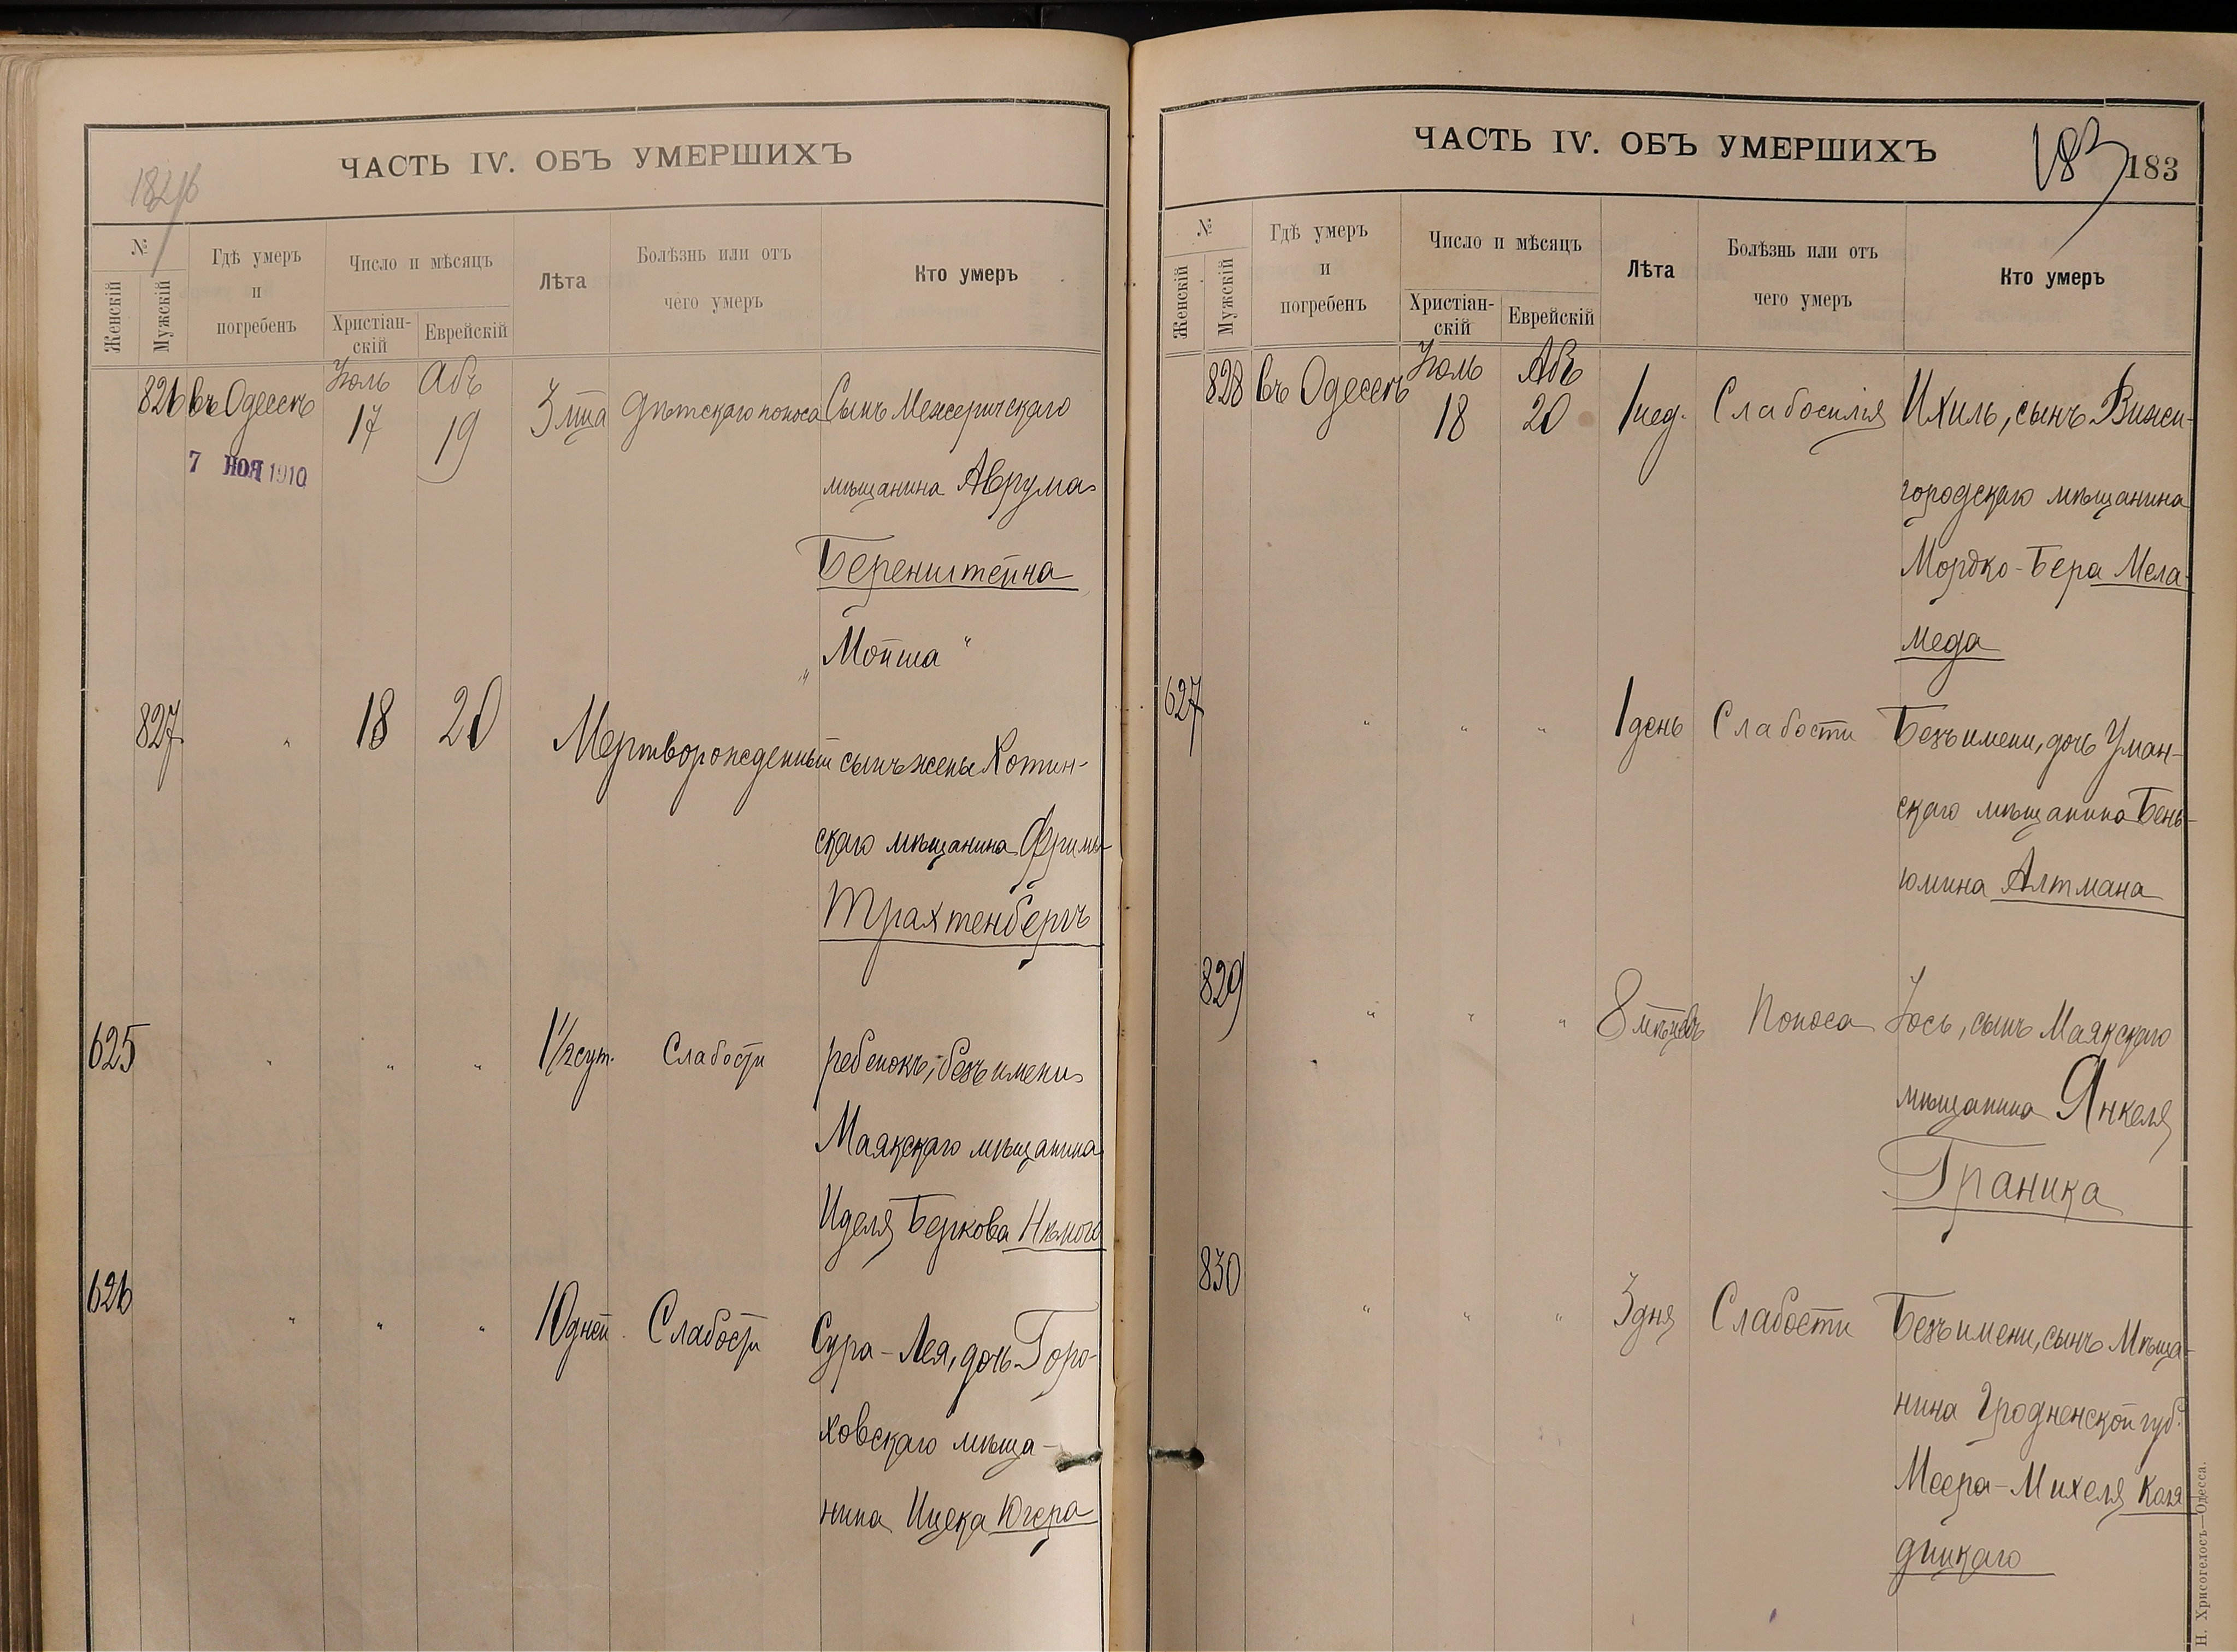 182об
ЧАСТЬ IV. ОБЪ УМЕРШИХЪ
№
Женскій
Мужскій
Гдѣ умеръ
и
погребенъ
Число и мѣсяцъ
Христіан-
скій
Еврейскій
Лѣта
Болѣзнь или отъ
чего умеръ
Кто умеръ
826 въ Одессѣ Іюль 17 Абъ 19 3 мѣа дѣтскаго поноса Сынъ Межеричскаго
7 НОЯ 1910
мѣщанина Аврума
Беренштейна
„Мойша“
827 " 18 20 Мертворожденный сынъ жены Хотин-
скаго мѣщанина Фримы
Трахтенбергъ
625 " " " 1 1/2 сут. Слабости ребенокъ, безъ имени
Маякскаго мѣщанина
Иделя Беркова Нѣмого
626 " " " 10 дней Слабости Сура-Лея, дочь Горо-
ховскаго мѣща-
нина Ицека Югера
ЧАСТЬ IV. ОБЪ УМЕРШИХЪ
183
183
№
Женскій
Мужскій
Гдѣ умеръ
и
погребенъ
Число и мѣсяцъ
Христіан-
скій
Еврейскій
Лѣта
Болѣзнь или отъ
чего умеръ
Кто умеръ
828 въ Одессѣ Іюль 18 Абъ 20 1 нед. Слабосилія Ихиль, сынъ Вижи-
городскаго мѣщанина
Мордко-Бера Мела-
меда
627 " " " 1 день Слабости Безъ имени, дочь Уман-
скаго мѣщанина Бень-
юмина Алтмана
829 " " " 8 мѣцевъ Поноса Іось, сынъ Маякскаго
мѣщанина Янкеля
Граника
830 " " " 3 дня Слабости Безъ имени, сынъ Мѣща-
нина Гродненской губ.
Меера-Михеля Каля-
дицкаго
Н. Хрисогелосъ—Одесса.